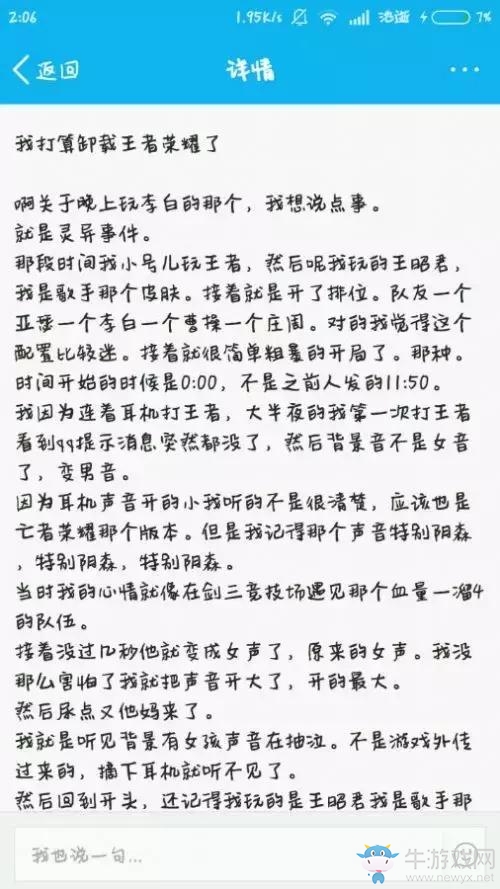 2:06 1.95K/s 浩逝 7%
返回 详情 ···
我打算卸载王者荣耀了
啊关于晚上玩李白的那个，我想说点事。
就是灵异事件。
那段时间我小号儿玩王者，然后呢我玩的王昭君，
我是歌手那个皮肤。接着就是开了排位。队友一个
亚瑟一个李白一个曹操一个庄周。对的我觉得这个
配置比较迷。接着就很简单粗暴的开局了。那种。
时间开始的时候是0:00，不是之前人发的11:50。
我因为连着耳机打王者，大半夜的我第一次打王者
看到qq提示消息突然都没了，然后背景音不是女音
了，变男音。
因为耳机声音开的小我听的不是很清楚，应该也是
亡者荣耀那个版本。但是我记得那个声音特别阴森
，特别阴森，特别阴森。
当时我的心情就像在剑三竞技场遇见那个血量一溜4
的队伍。
接着没过几秒他就变成女声了，原来的女声。我没
那么害怕了我就把声音开大了，开的最大。
然后尿点又他妈来了。
我就是听见背景有女孩声音在抽泣。不是游戏外传
过来的，摘下耳机就听不见了。
然后回到开头，还记得我玩的是王昭君我是歌手那
我也说一句...
牛游戏网
www.newyx.net